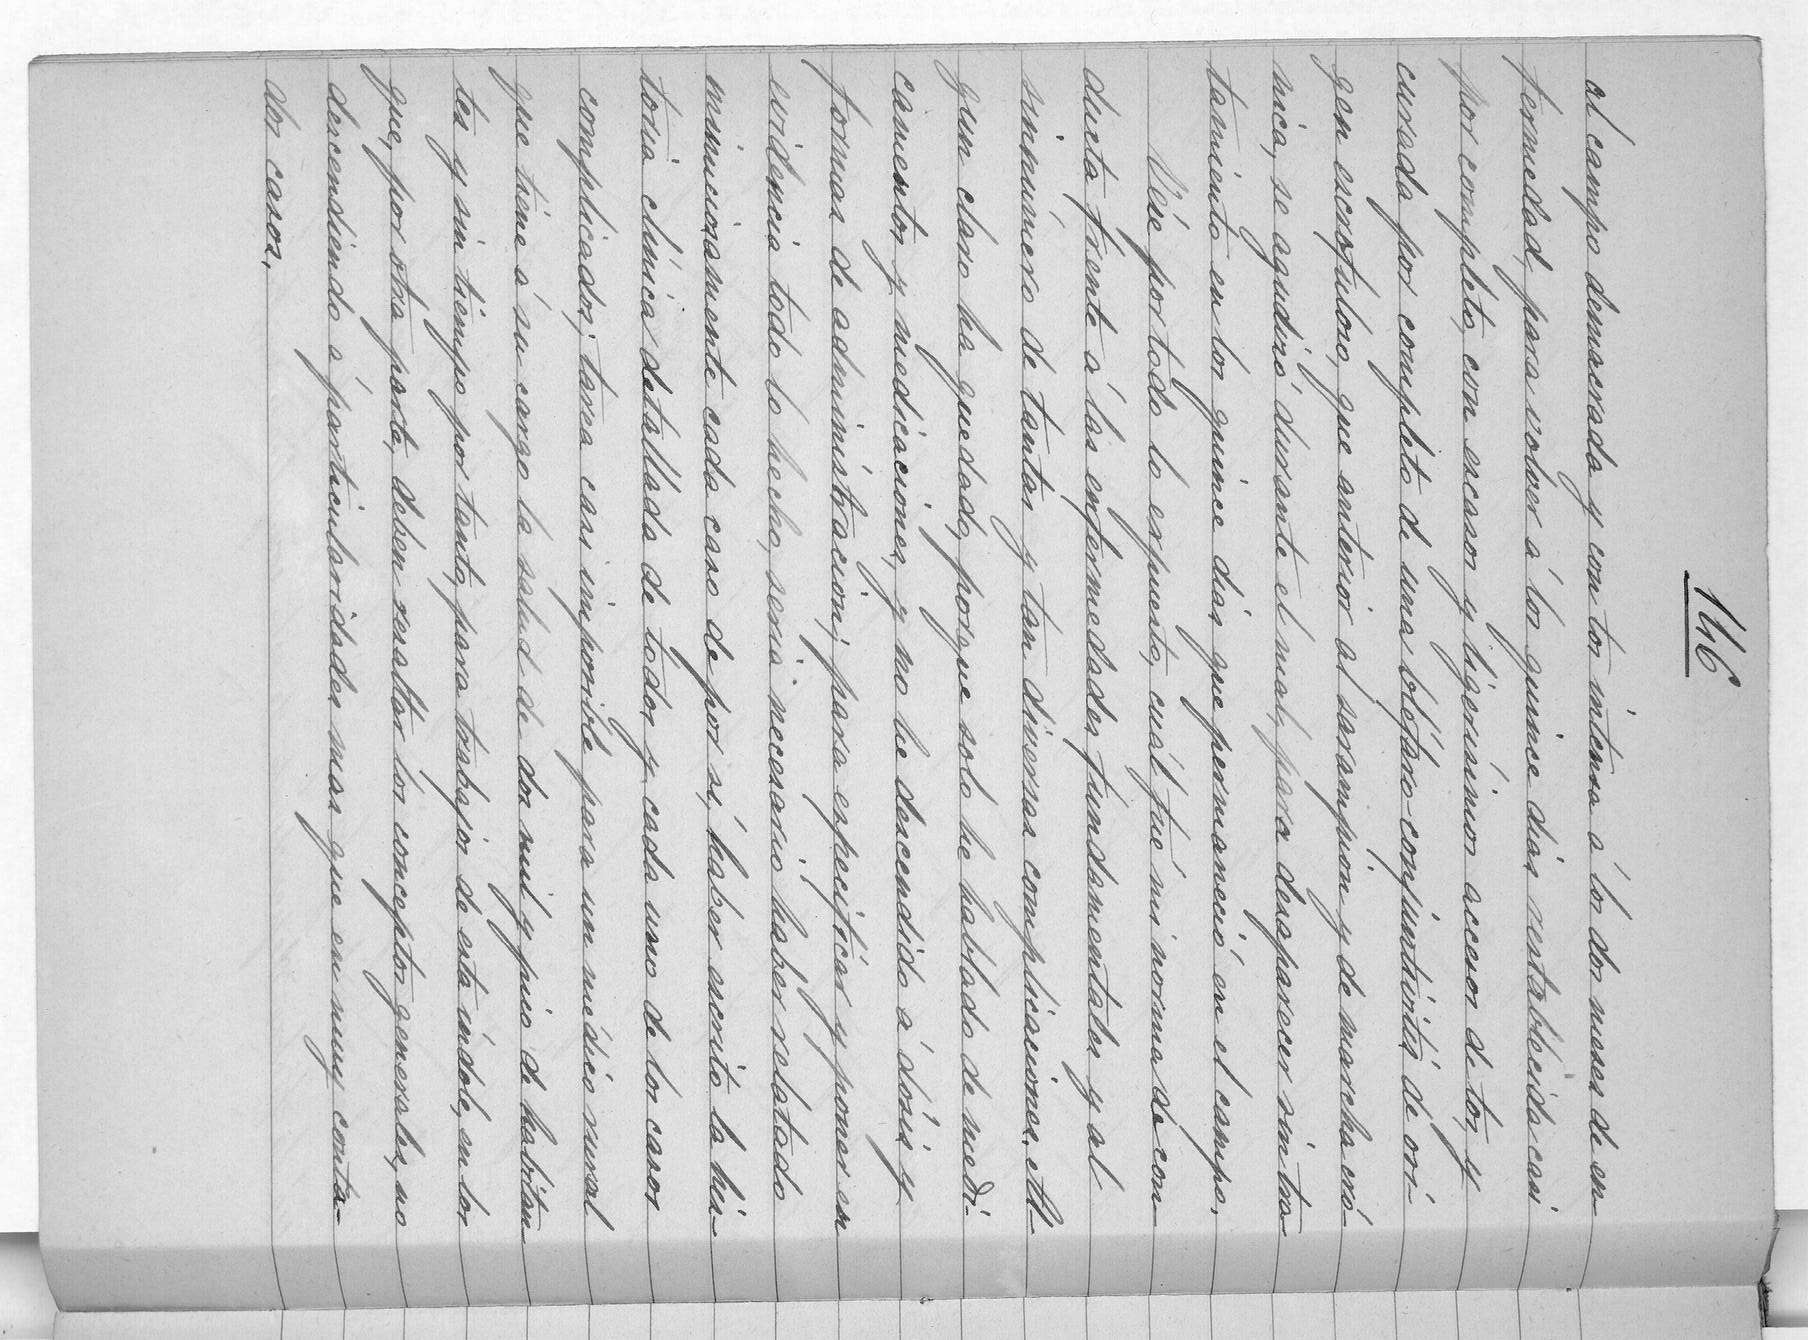 146
el campo demacrada y con tos intensa á los dos meses de en-
fermedad, para volver á los quince dias restablecida casi
por completo, con escasos y ligerísimos accesos de tos, y
curada por completo de una blefaro-conjuntivitis de orí-
gen escrofuloso, que anterior al sarampion y de marcha cró-
nica, se agudizó durante el mal, para desaparecer sin tra-
tamiento en los quince dias que permaneció en el campo.
Vése por todo lo expuesto, cuál fué mi norma de con-
ducta frente á las enfermedades fundamentales y al
sinnúmero de tantas y tan diversas complicaciones. Al-
gun claro ha quedado, porque solo he hablado de medi-
camentos y medicaciones, y no he descendido á dósis y
formas de administracion; para especificar y poner en
evidencia todo lo hecho, seria necesario haber relatado
minuciosamente cada caso de por sí, haber escrito la his-
toria clínica detallada de todos y cada uno de los casos
complicados; tarea casi imposible para un médico rural
que tiene á su cargo la salud de dos mil y pico de habitan-
tes y sin tiempo por tanto, para trabajos de esta índole, en los
que, por otra parte, deben resaltar los conceptos generales, no
descendiendo á particularidades mas que en muy conta-
dos casos.